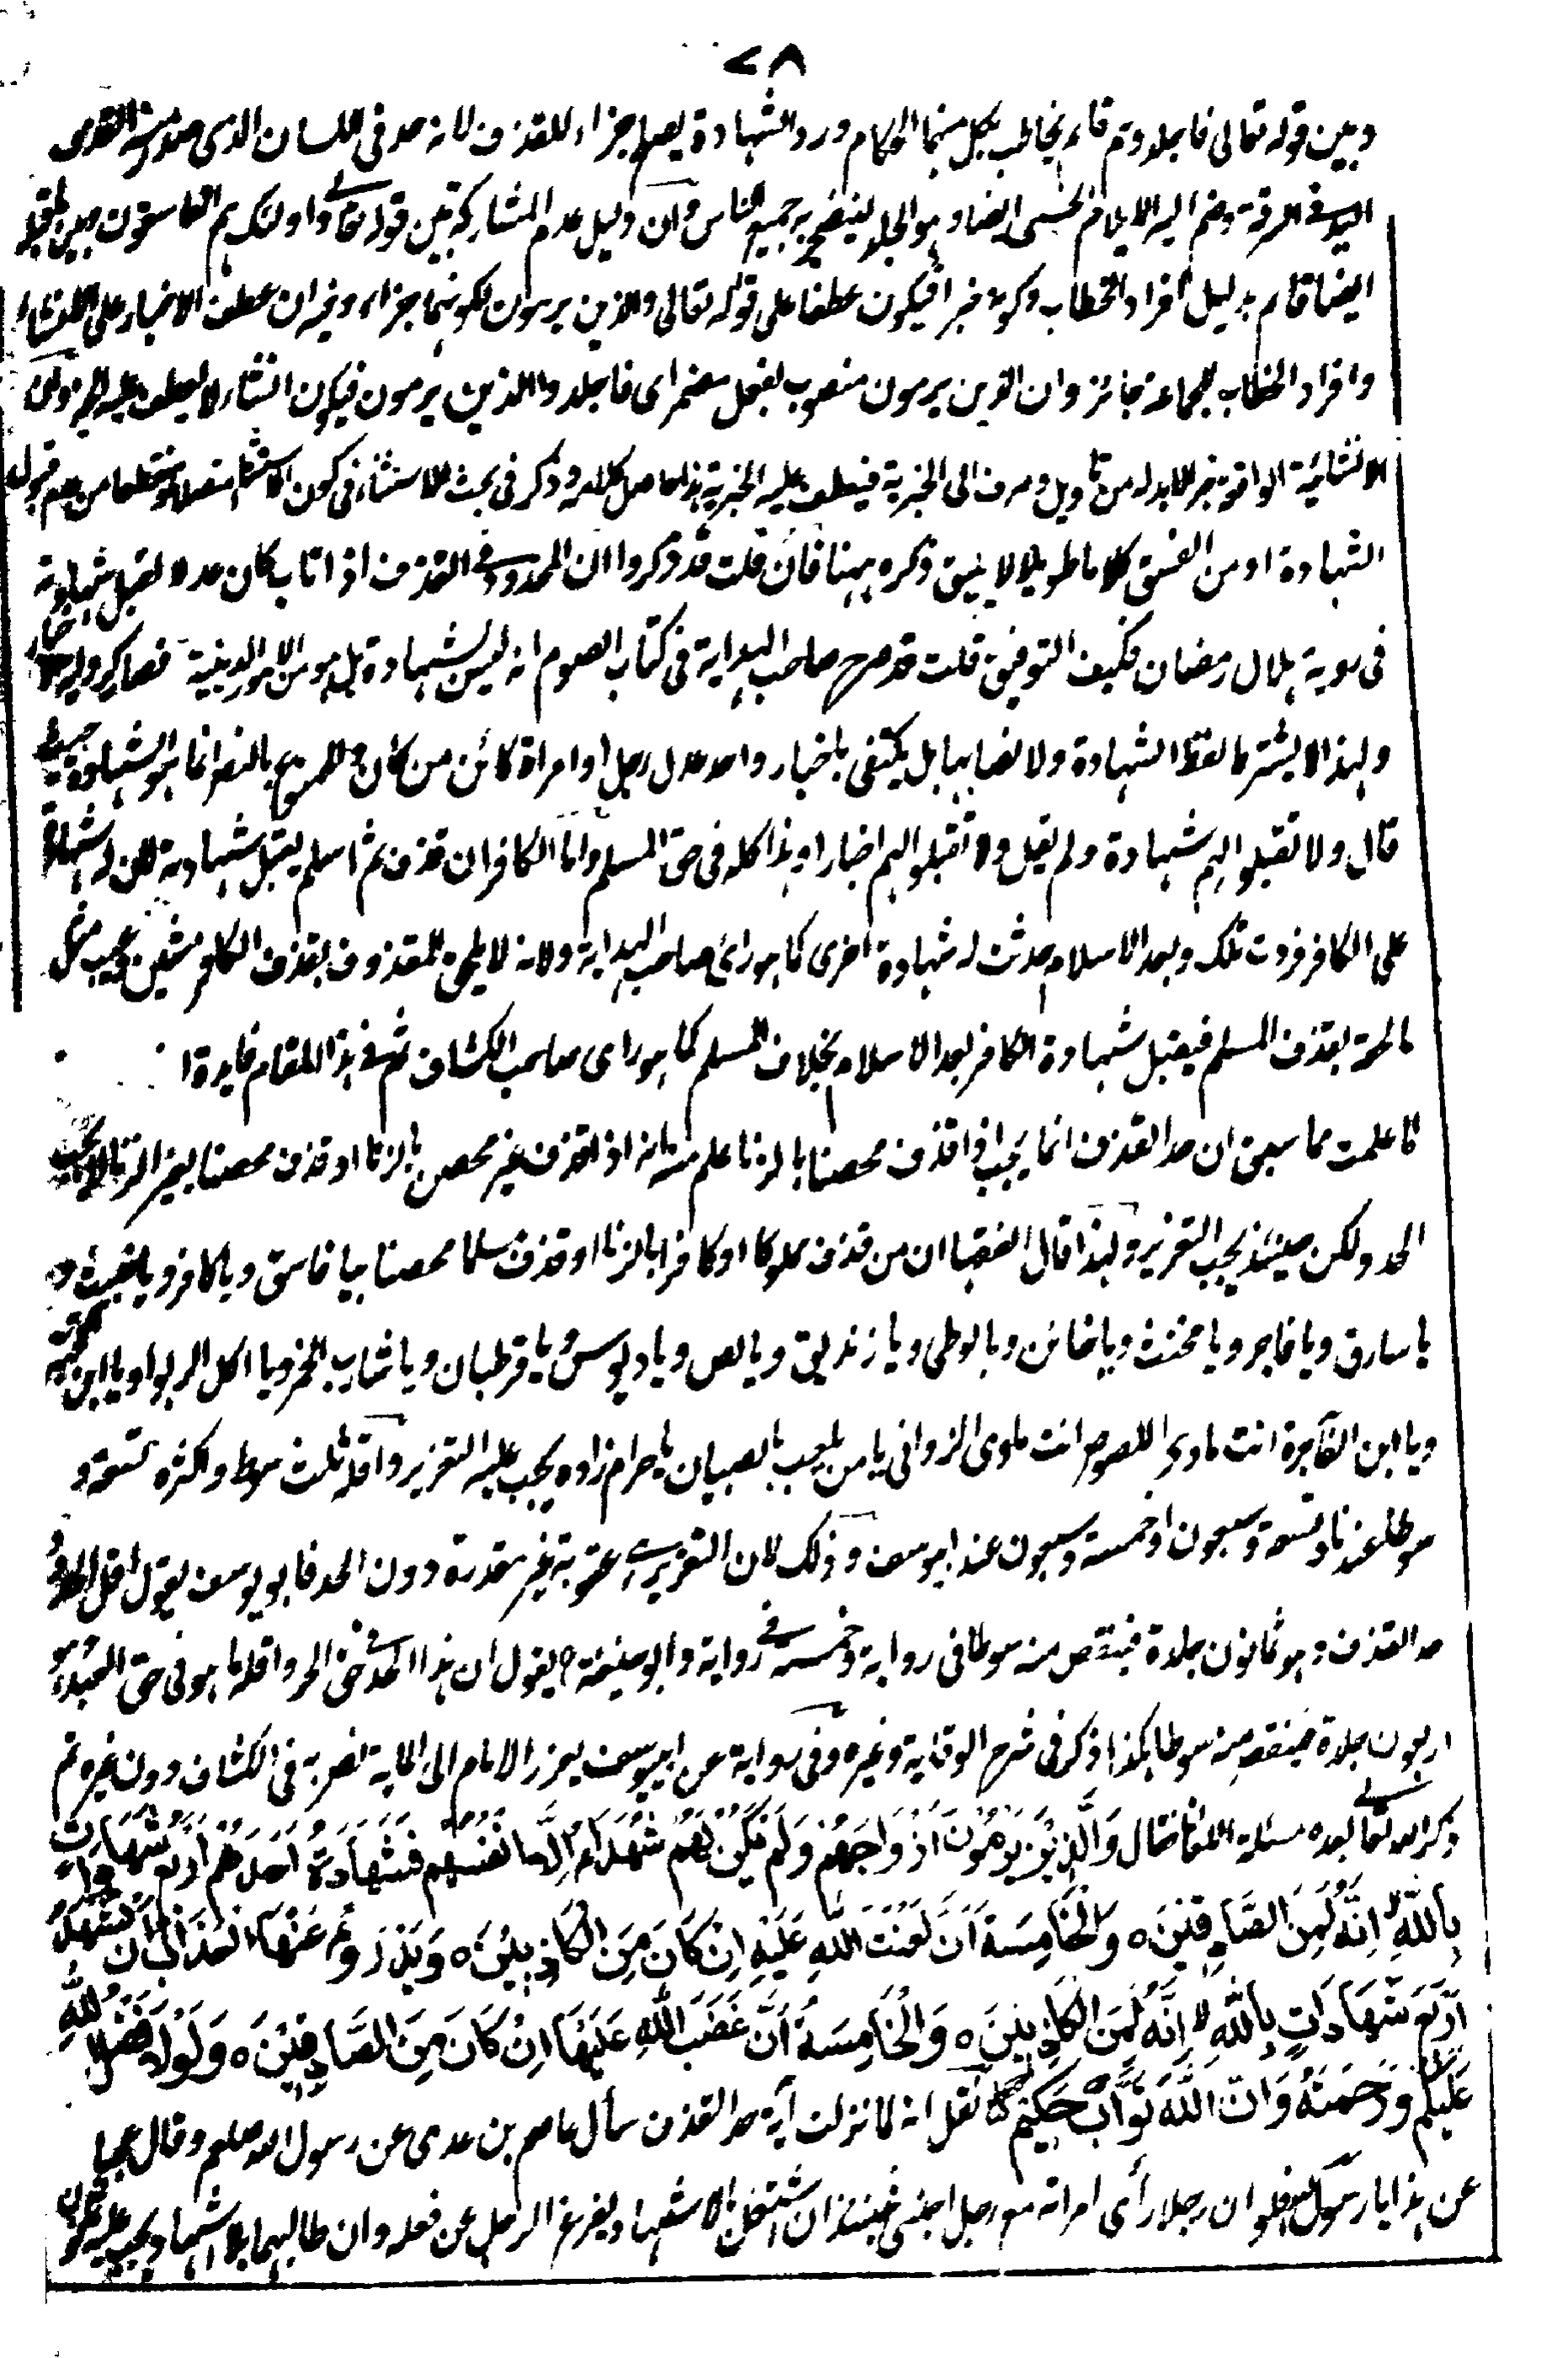 ٧٨
وبين قوله تعالى فاجلدوهم قائم يخاطب بكل منهما الحكام ورد الشهادة يصلح جزاء للقذف لانه حد فى اللسان الذى صدر منه القذف
اليد فى السرقة وضم اليه الايلام الحسى ايضا وهو الجلد لينضجر به جميع الناس وان دليل عدم المشاركة بين قوله تعالى واولئك هم الفاسقون وبين ما قبله
ايضا قائم بدليل افراد الخطاب وكونه خبرا فيكون عطفا على قوله تعالى والذين يرمون لكونهما جزاء وفيه ان عطف الاخبار على الانشاء
وافراد الخطاب للجماعة جائز وان الذين يرمون منصوب بفعل مضمر اى فاجلدوا الذين يرمون فيكون انشاء لا يعطف عليه الخبر ولئن
الانشائية الواقعة خبرا لا بد له من تاويل وصرف الى الخبرية فيعطف عليه الخبرية هذا حاصل كلامه وذكر فى بحث الاستثناء فى كون الاستثناء متصلا او منقطعا من عدم قبول
الشهادة او من الفسق كلاما طويلا لا يليق ذكره ههنا فان قلت قد ذكروا ان المحدود فى القذف اذا تاب كان عدلا تقبل شهادته
فى روية هلال رمضان فكيف التوفيق قلت قد صرح صاحب الهداية فى كتاب الصوم انه ليس بشهادة بل هو من الامور الدينية فصار كرواية الاخبار
ولهذا لا يشترط لفظ الشهادة ولا نصابها بل يكتفى باخبار واحد عدل رجل او امراة كائن من كان والممنوع بالنص انما هو الشهادة حيث
قال ولا تقبلوا لهم شهادة ولم يقل ولا تقبلوا لهم اخبارا وهذا كله فى حق المسلم واما الكافر ان قذف ثم اسلم يقبل شهادته لان له شهادة
على الكافر فردت تلك وبعد الاسلام حدثت له شهادة اخرى كما هو رائ صاحب الهداية ولانه لا يلحق المقذوف بقذف الكافر شين وعيب مثل
ما لحقه بقذف المسلم فيقبل شهادة الكافر بعد الاسلام بخلاف المسلم كما هو راى صاحب الكشاف ثم فى هذا المقام فايدة
لما علمت مما سبق ان حد القذف انما يجب اذا قذف محصنا بالزنا علم منه انه اذا قذف غير محصن بالزنا او قذف محصنا بغير الزنا لا يجب
الحد ولكن حينئذ يجب التعزير ولهذا قال الفقهاء ان من قذف مملوكا او كافرا بالزنا او قذف مسلما محصنا بيا فاسق ويا كافر ويا خبيث و
يا سارق ويا فاجر ويا مخنث ويا خائن ويا لوطى ويا زنديق ويا لص ويا ديوس ويا قرطبان ويا شارب الخمر ويا آكل الربوا ويا ابن القحبة
ويا ابن الفاجرة انت ماوى اللصوص انت ماوى الزوانى يا من يلعب بالصبيان يا حرام زاده يجب عليه التعزير واقله ثلث سوط واكثره تسعة و
سوطا عندنا وتسعة وسبعون او خمسة وسبعون عند ابى يوسف وذلك لان التعزير هى عقوبة غير مقدرة دون الحد فابو يوسف يقول اقل الحدود
حد القذف وهو ثمانون جلدة فينقص منه سوطا فى رواية وخمسة فى رواية وابو حنيفة رح يقول ان هذا الحد فى حق الحر واقله ما هو فى حق العبد وهو
اربعون جلدة فينقص منه سوطا هكذا ذكر فى شرح الوقاية وغيره وفى رواية عن ابى يوسف يعزر الامام الى المائة نص به فى الكشاف دون غيره ثم
ذكر الله تعالى بعده مسئلة اللعان فقال وَالَّذِيْنَ يَرْمُوْنَ اَزْوَاجَهُمْ وَلَمْ يَكُنْ لَهُمْ شُهَدَاءُ اِلَّا اَنْفُسُهُمْ فَشَهَادَةُ اَحَدِهِمْ اَرْبَعُ شَهَادَاتٍ
بِاللّٰهِ اِنَّهُ لَمِنَ الصَّادِقِيْنَ ٥ وَالْخَامِسَةُ اَنَّ لَعْنَتَ اللّٰهِ عَلَيْهِ اِنْ كَانَ مِنَ الْكَاذِبِيْنَ ٥ وَيَدْرَؤُ عَنْهَا الْعَذَابَ اَنْ تَشْهَدَ
اَرْبَعَ شَهَادَاتٍ بِاللّٰهِ لا اِنَّهُ لَمِنَ الْكَاذِبِيْنَ ٥ وَالْخَامِسَةَ اَنَّ غَضَبَ اللّٰهِ عَلَيْهَا اِنْ كَانَ مِنَ الصَّادِقِيْنَ ٥ وَلَوْلَا فَضْلُ اللّٰهِ
عَلَيْكُمْ وَرَحْمَتُهُ وَاَنَّ اللّٰهَ تَوَّابٌ حَكِيْمٌ نقل انه لما نزلت آية حد القذف سأل عاصم بن عدى عن رسول الله صلعم وقال عجبا
عن هذا يا رسول الله فلو ان رجلا رأى امراته مع رجل اجنبى فحينئذ ان اشتغل بالاشهاد يفرغ الرجل عن فعله وان طالبهما بلا اشهاد يجب عليه